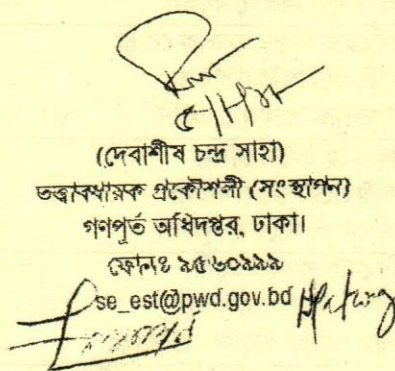 (দেবাশীষ চন্দ্র সাহা)
তত্ত্বাবধায়ক প্রকৌশলী (সংস্থাপন)
গণপূর্ত অধিদপ্তর, ঢাকা।
ফোনঃ ৯৫৬০৯৯৯
se_est@pwd.gov.bd